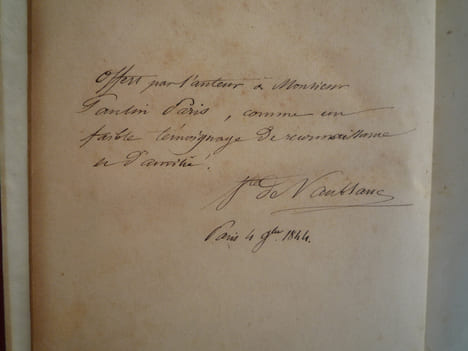 Offert par l'auteur à Monsieur
Paulin Paris, comme un
faible témoignage de reconnaissance
et d'amitié.
Vte de Vaublanc
Paris 4 9bre 1844.